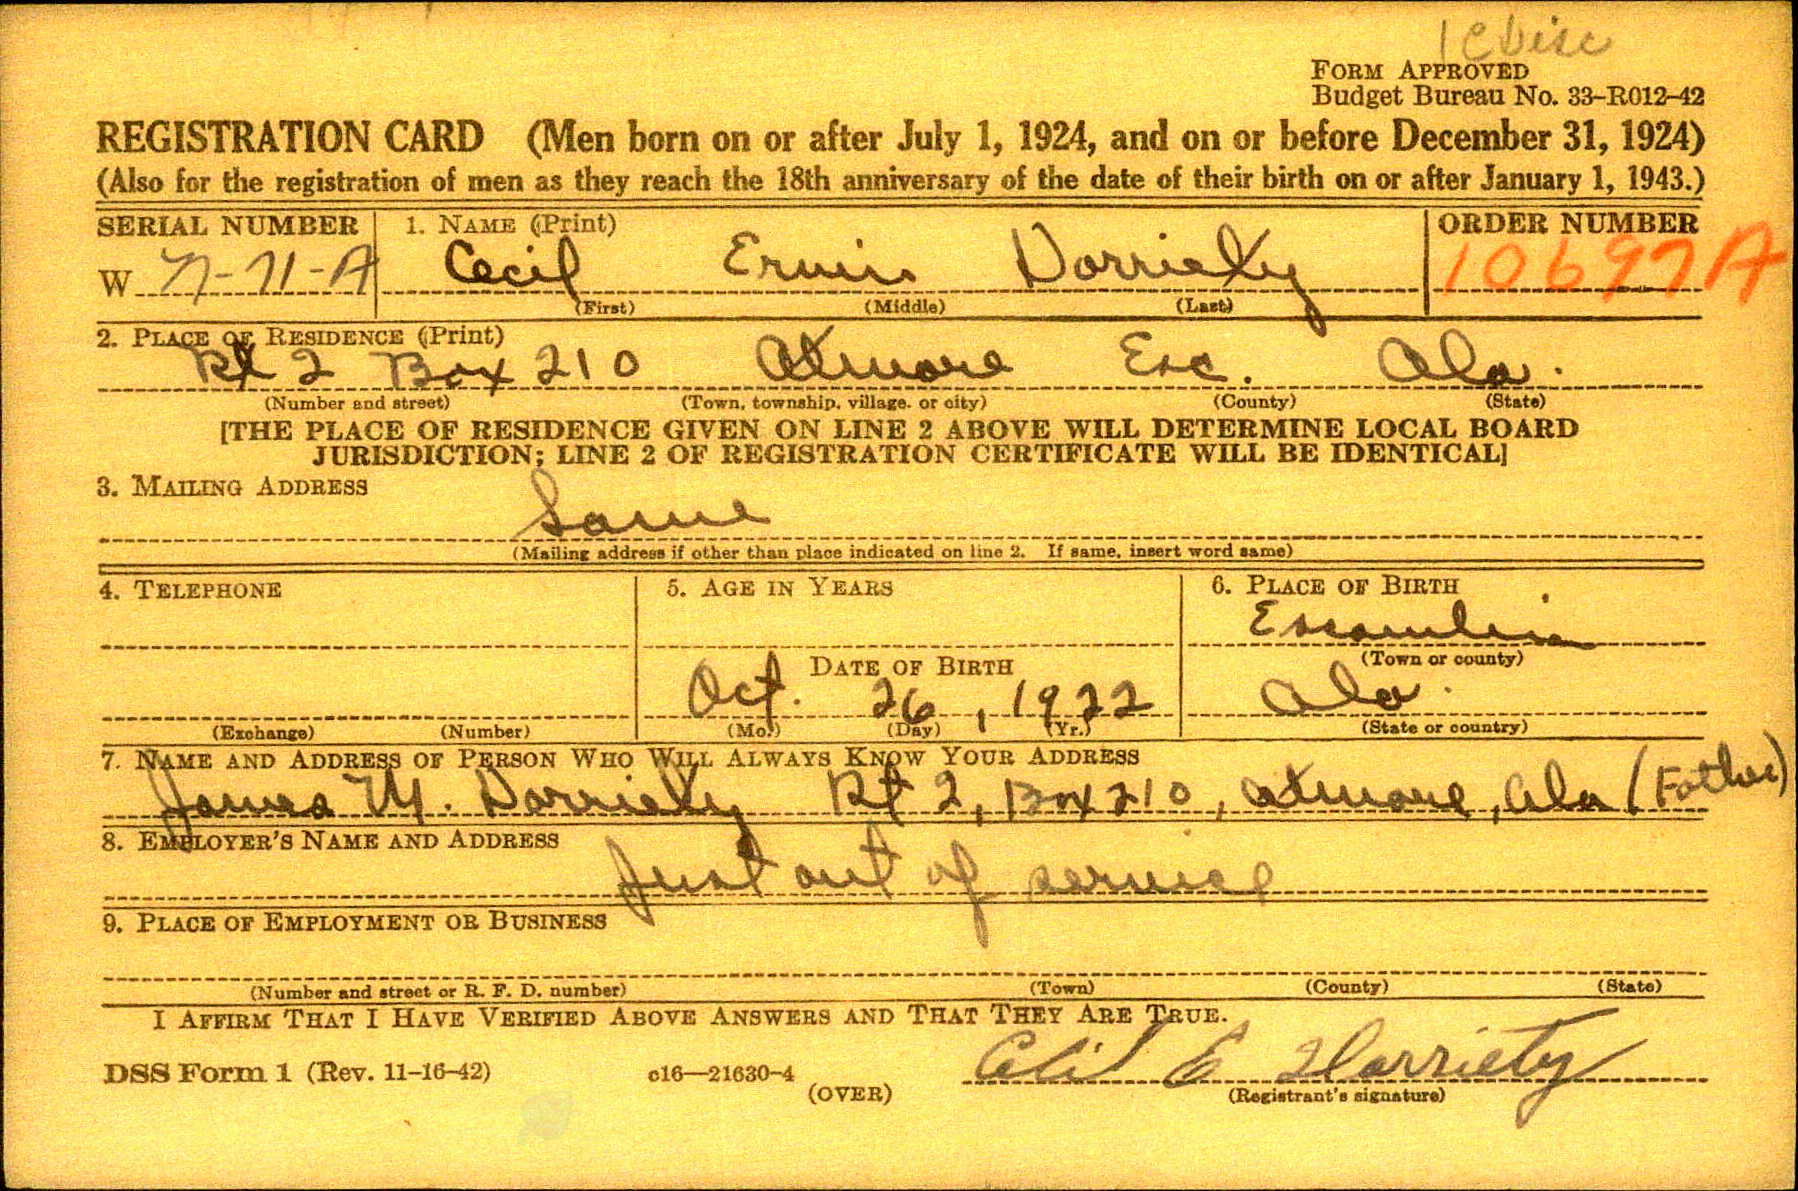 1C Disc
FORM APPROVED
Budget Bureau No. 33-R012-42
REGISTRATION CARD (Men born on or after July 1, 1924, and on or before December 31, 1924)
(Also for the registration of men as they reach the 18th anniversary of the date of their birth on or after January 1, 1943.)
SERIAL NUMBER 1. NAME (Print) ORDER NUMBER
W Cecil Ervin Dorriety 10697A
(First) (Middle) (Last)
2. PLACE OF RESIDENCE (Print)
Rt 2 Box 210 Atmore Esc. Ala.
(Number and street) (Town, township, village, or city) (County) (State)
[THE PLACE OF RESIDENCE GIVEN ON LINE 2 ABOVE WILL DETERMINE LOCAL BOARD
JURISDICTION; LINE 2 OF REGISTRATION CERTIFICATE WILL BE IDENTICAL]
3. MAILING ADDRESS
Same
(Mailing address if other than place indicated on line 2. If same, insert word same)
4. TELEPHONE 5. AGE IN YEARS 6. PLACE OF BIRTH
Escambia
(Town or county)
DATE OF BIRTH
Oct. 26, 1922 Ala.
(Exchange) (Number) (Mo.) (Day) (Yr.) (State or country)
7. NAME AND ADDRESS OF PERSON WHO WILL ALWAYS KNOW YOUR ADDRESS
James M. Dorriety Rt 2, Box 210, Atmore, Ala (Father)
8. EMPLOYER'S NAME AND ADDRESS
Just out of service
9. PLACE OF EMPLOYMENT OR BUSINESS
(Number and street or R. F. D. number) (Town) (County) (State)
I AFFIRM THAT I HAVE VERIFIED ABOVE ANSWERS AND THAT THEY ARE TRUE.
DSS Form 1 (Rev. 11-16-42) c16—21630-4 Cecil E Dorriety
(OVER) (Registrant's signature)